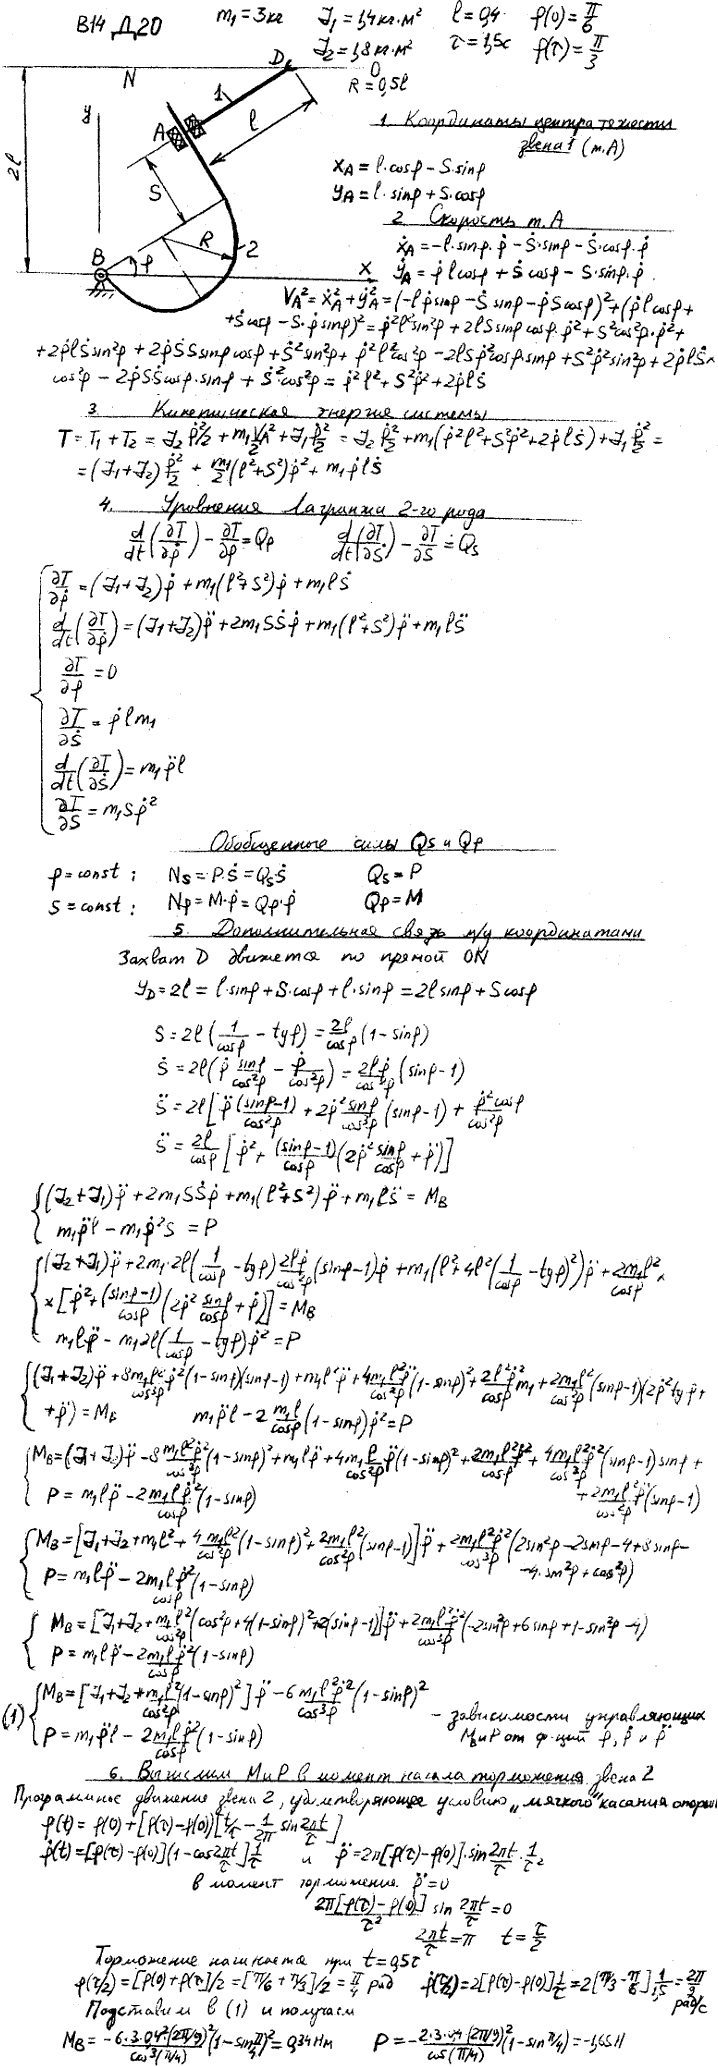 В14 Д.20
m₁ = 3 кг J₁ = 1,4 кг·м² l = 0,4 φ(0) = π/6
J₂ = 1,8 кг·м² τ = 1,5с φ(τ) = π/3
R = 0,5l
N D O
y 1 A l
2l S R 2
B φ X
1. Координаты центра тяжести
звена 1 (т.А)
x_A = l·cosφ – S·sinφ
y_A = l·sinφ + S·cosφ
2. Скорость т.А
ẋ_A = –l·sinφ·φ̇ – Ṡ·sinφ – S·cosφ·φ̇
ẏ_A = φ̇ l cosφ + Ṡ cosφ – S·sinφ·φ̇.
V_A² = ẋ_A² + ẏ_A² = (–lφ̇sinφ – Ṡ sinφ – φ̇Scosφ)² + (φ̇ l cosφ +
+ Ṡcosφ – S·φ̇ sinφ)² = φ̇²l²sin²φ + 2lS sinφ cosφ·φ̇² + S²cos²φ·φ̇² +
+ 2φ̇lṠsin²φ + 2φ̇ṠS sinφ cosφ + Ṡ²sin²φ + φ̇²l²cos²φ – 2lSφ̇²cosφ sinφ + S²φ̇²sin²φ + 2φ̇lṠ×
cos²φ – 2φ̇SṠcosφ·sinφ + Ṡ²cos²φ = φ̇²l² + S²φ̇² + 2φ̇lṠ
3. Кинетическая энергия системы
T = T₁ + T₂ = J₂φ̇²/2 + m₁V_A²/2 + J₁φ̇²/2 = J₂φ̇²/2 + m₁(φ̇²l² + S²φ̇² + 2φ̇lṠ) + J₁φ̇²/2 =
= (J₁+J₂)φ̇²/2 + m₁/2(l²+S²)φ̇² + m₁φ̇lṠ
4. Уровнения Лагранжа 2-го рода
d/dt(∂T/∂φ̇) – ∂T/∂φ = Qφ d/dt(∂T/∂Ṡ) – ∂T/∂S = Qs
∂T/∂φ̇ = (J₁+J₂)φ̇ + m₁(l²+S²)φ̇ + m₁lṠ
d/dt(∂T/∂φ̇) = (J₁+J₂)φ̈ + 2m₁SṠφ̇ + m₁(l²+S²)φ̈ + m₁lS̈
∂T/∂φ = 0
∂T/∂Ṡ = φ̇ l m₁
d/dt(∂T/∂Ṡ) = m₁φ̈l
∂T/∂S = m₁Sφ̇²
Обобщенные силы Qs и Qφ
φ = const ; Ns = P·Ṡ = Qs·Ṡ Qs = P
S = const ; Nφ = M·φ̇ = Qφ·φ̇ Qφ = M
5. Дополнительная связь м/у координатами
Захват D движется по прямой ON
y_D = 2l = l·sinφ + S·cosφ + l·sinφ = 2l sinφ + S cosφ
S = 2l(1/cosφ – tgφ) = 2l/cosφ (1 – sinφ)
Ṡ = 2l(φ̇ sinφ/cos²φ – φ̇/cos²φ) = 2lφ̇/cos²φ (sinφ – 1)
S̈ = 2l[φ̈(sinφ–1)/cos²φ + 2φ̇²sinφ/cos³φ (sinφ – 1) + φ̇²cosφ/cos²φ
S̈ = 2l/cosφ [φ̇² + (sinφ–1)/cosφ (2φ̇² sinφ/cosφ + φ̈)]
(J₂+J₁)φ̈ + 2m₁SṠφ̇ + m₁(l²+S²)φ̈ + m₁lS̈ = M_B
m₁φ̈l – m₁φ̇²S = P
(J₂+J₁)φ̈ + 2m₁·2l(1/cosφ – tgφ)2lφ̇/cos²φ (sinφ–1)φ̇ + m₁(l²+4l²(1/cosφ – tgφ)²)φ̈ + 2m₁l²/cosφ ×
×[φ̇² + (sinφ–1)/cosφ (2φ̇² sinφ/cosφ + φ̈)] = M_B
m₁lφ̈ – m₁2l(1/cosφ – tgφ)φ̇² = P
(J₁+J₂)φ̈ + 8m₁l²/cos³φ φ̇²(1–sinφ)(sinφ–1) + m₁l²φ̈ + 4m₁l²φ̈/cos²φ (1–sinφ)² + 2l²φ̇²/cosφ m₁ + 2m₁l²/cos²φ (sinφ–1)(2φ̇²tgφ +
+ φ̈) = M_B m₁φ̈l – 2 m₁l/cosφ (1–sinφ)φ̇² = P
M_B = (J₁+J₂)φ̈ – 8m₁l²φ̇²/cos³φ (1–sinφ)² + m₁lφ̈ + 4m₁l/cos²φ φ̈(1–sinφ)² + 2m₁l²φ̇²/cosφ + 4m₁l²φ̇²/cos³φ (sinφ–1)sinφ +
P = m₁lφ̈ – 2m₁lφ̇²/cosφ (1–sinφ) + 2m₁l²/cos²φ φ̈(sinφ–1)
M_B = [J₁+J₂+m₁l² + 4m₁l²/cos²φ (1–sinφ)² + 2m₁l²/cos²φ (sinφ–1)]φ̈ + 2m₁l²φ̇²/cos³φ (2sin²φ – 2sinφ – 4 + 8sinφ –
P = m₁lφ̈ – 2m₁lφ̇²/cosφ (1–sinφ) –4·sin²φ + cos²φ)
M_B = [J₁+J₂ + m₁l²/cos²φ (cos²φ + 4(1–sinφ)² + 2(sinφ–1)]φ̈ + 2m₁l²φ̇²/cos³φ (–2sin²φ + 6sinφ + 1 – sin²φ – 4)
P = m₁lφ̈ – 2m₁lφ̇²/cosφ (1–sinφ)
(1) M_B = [J₁+J₂ + m₁l²/cos²φ (1–sinφ)²]φ̈ – 6m₁l²φ̇²/cos³φ (1–sinφ)² – зависимости управляющих
P = m₁φ̈l – 2m₁lφ̇²/cosφ (1–sinφ) М и Р от ф-ций φ, φ̇ и φ̈
6. Вычислим М и Р в момент начала торможения звена 2
Программное движение звена 2, удовлетворяющее условию „мягкого“ касания опоры
φ(t) = φ(0) + [φ(τ)–φ(0)][t/τ – 1/2π sin 2πt/τ]
φ̇(t) = [φ(τ)–φ(0)](1–cos 2πt/τ]1/τ и φ̈ = 2π[φ(τ)–φ(0)]·sin 2πt/τ · 1/τ²
в момент торможения φ̈ = 0
2π[φ(τ)–φ(0)]/τ² sin 2πt/τ = 0
2πt/τ = π t = τ/2
Торможение начинается при t = 0,5τ
φ(τ/2) = [φ(0)+φ(τ)]/2 = [π/6 + π/3]/2 = π/4 рад φ̇(τ/2) = 2[φ(τ)–φ(0)]1/τ = 2[π/3 – π/6]1/1,5 = 2π/9 рад/с
Подставим в (1) и получаем
M_B = –6·3·0,4²(2π/9)²/cos³(π/4) (1–sin π/4)² = 0,34 Нм P = –2·3·0,4(2π/9)²/cos(π/4) (1–sin π/4) = –1,65 Н